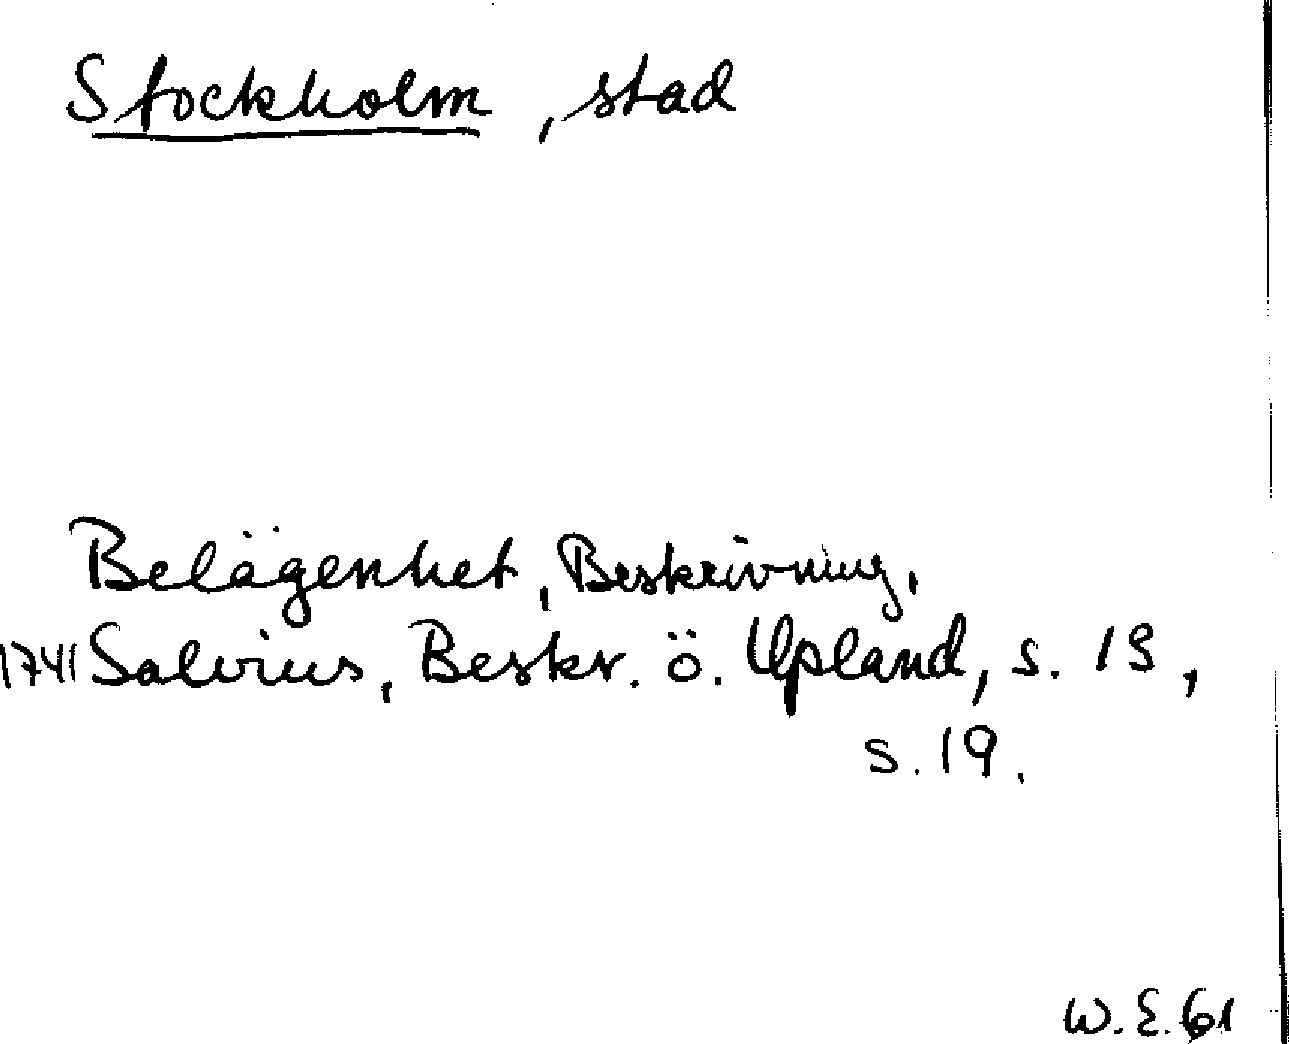 Stockholm, stad
Belägenhet, Beskrivning,
1741 Salvius, Beskr. ö. Upland, s. 13,
s. 19.
W. E. 61